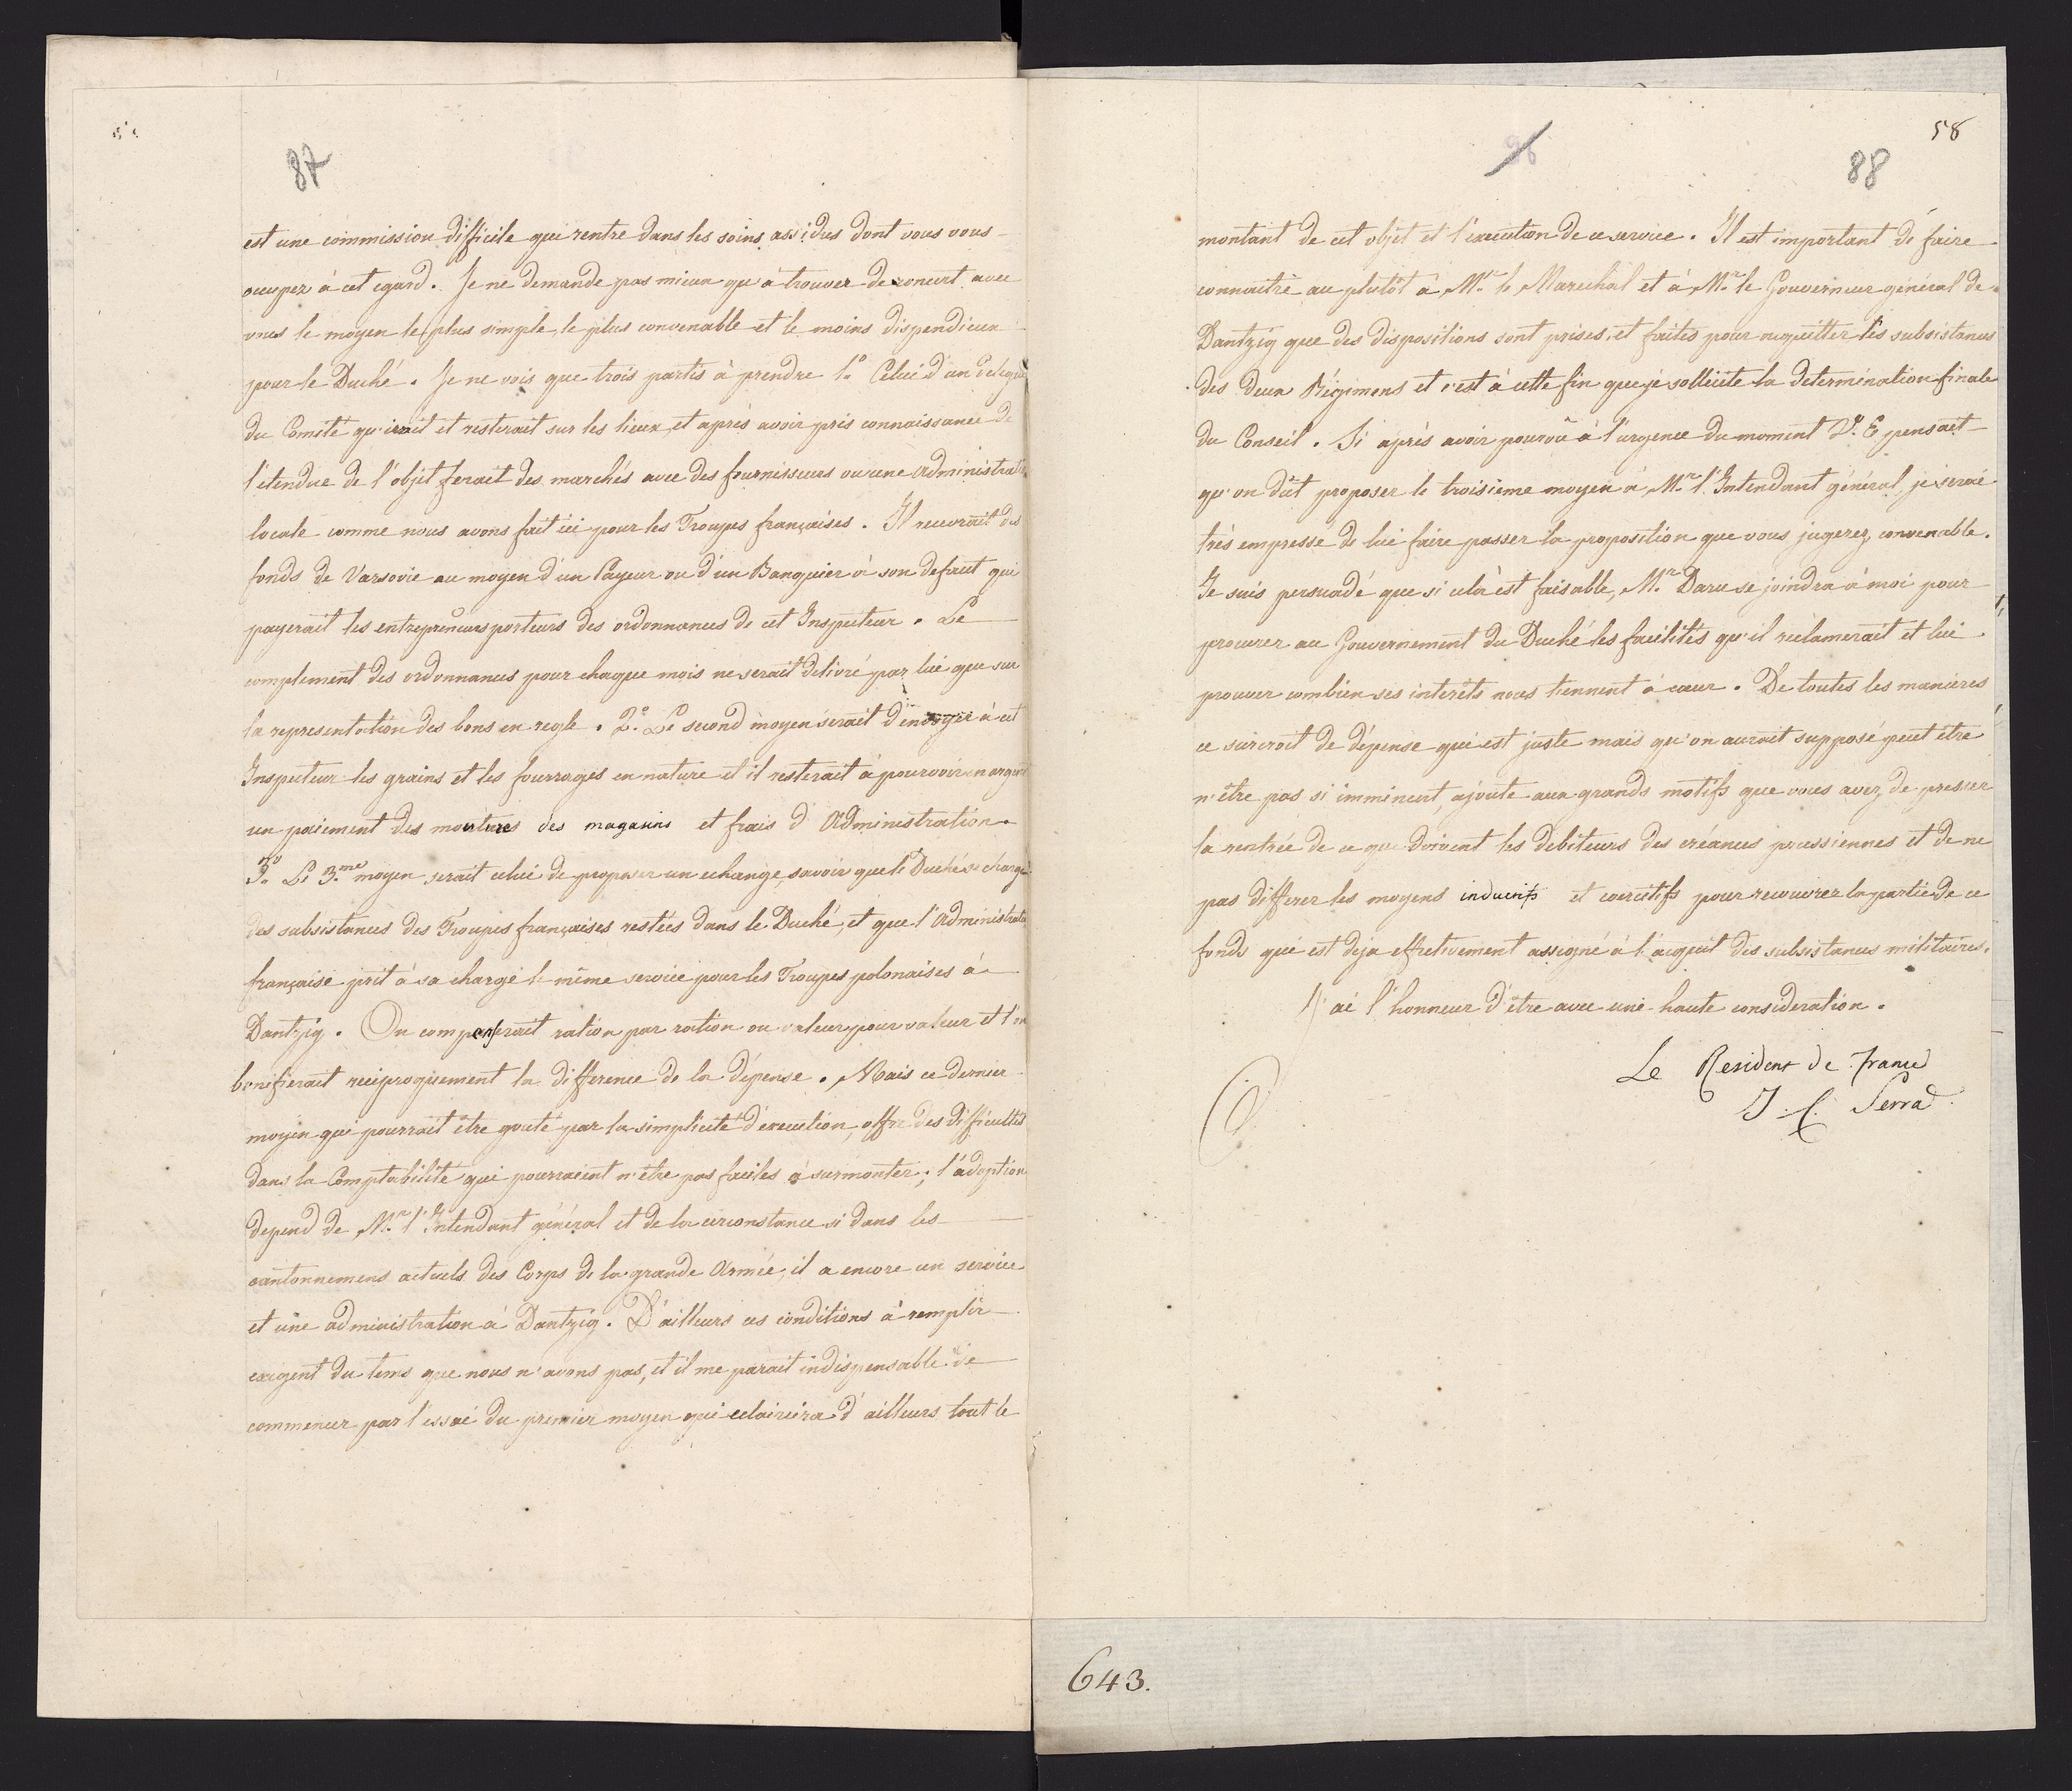 87
est une commission difficile qui rentre dans les soins assidus dont vous vous
occupez à cet egard. Je ne demande pas mieux qu'à trouver de concert avec
vous le moyen le plus simple, le plus convenable et le moins dispendieux
pour le Duché. Je ne vois que trois partis à prendre 1.º Celui d'un délegué
du Comité qu'irait et resterait sur les lieux, et après avoir pris connaissance de
l'étendue de l'objet ferait des marchés avec des fournisseurs ou une Administrati
locale comme nous avons fait ici pour les Troupes françaises. Il recevrait des
fonds de Varsovie au moyen d'un Payeur ou d'un Banquier à son defaut qui
payerait les entrepreneurs porteurs des ordonnances de cet Inspecteur. Le
complement des ordonnances pour chaque mois ne serait delivré par lui que sur
la representation des bons en regle. 2.º Le second moyen serait d'envoyer à cet
Inspecteur les grains et les fourrages en nature et il resterait à pourvoir en argent
un paiement des moutures des magasins et frais d'Administration.
3.º Le 3.me moyen serait celui de proposer un echange, savoir que le Duché se charge
des subsistances des Troupes françaises restées dans le Duché, et que l'Administrati
française prit à sa charge le même service pour les Troupes polonaises à
Dantzig. On compenserait ration par ration ou valeur pour valeur et l'on
bonifierait reciproquement la difference de la dépense. Mais ce dernier
moyen qui pourrait être gouté par la simplicité d'execution, offre des difficultés
dans la Comptabilité qui pourraient n'être pas faciles à surmonter; l'adoption
depend de M.r l'Intendant général et de la circonstance si dans les
cantonnemens actuels des Corps de la grande Armée, il a encore un service
et une administration à Dantzig. D'ailleurs ces conditions à remplir
exigent du tems que nous n'avons pas, et il me parait indispensable de
commencer par l'essai du premier moyen qui eclaircira d'ailleurs tout le
58
88
montant de cet objet et l'execution de ce service. Il est important de faire
connaitre au plutôt à M.r le Marechal et à M.r le Gouverneur général de
Dantzig que des dispositions sont prises et faites pour acquitter les subsistances
des deux Régimens et c'est à cette fin que je sollicite la determination finale
du Conseil. Si après avoir pourvû à l'urgence du moment V. E pensait
qu'on dût proposer le troisieme moyen à M.r l'Intendant général, je serai
très empressé de lui faire passer la proposition que vous jugerez convenable.
Je suis persuadé que si celà est faisable, M.r Daru se joindra à moi pour
procurer au Gouvernement du Duché les facilités qu'il réclamerait et lui
prouver combien ses interêts nous tiennent à cœur. De toutes les manieres
ce surcroit de dépense qui est juste mais qu'on aurait supposé peut être
n'être pas si imminent, ajoute aux grands motifs que vous avez de presser
la rentrée de ce que doivent les debiteurs des créances prussiennes et de ne
pas differer les moyens inductifs et coercitifs pour recouvrer la partie de ce
fonds qui est deja effectivement assigné à l'acquit des subsistances militaires.
J'ai l'honneur d'être avec une haute consideration.
Le Resident de France
J. C. Serra
643.